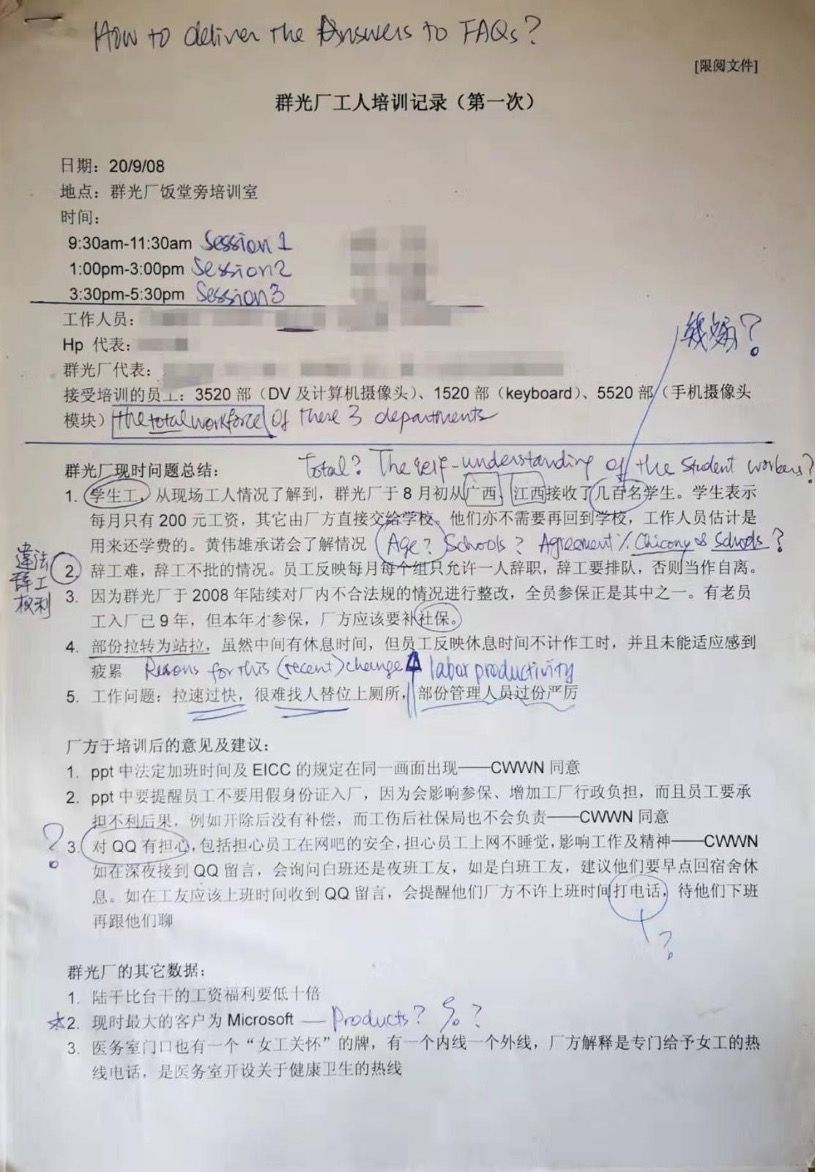 How to deliver the Answers to FAQs?
[限阅文件]
群光厂工人培训记录（第一次）
日期：20/9/08
地点：群光厂饭堂旁培训室
时间：
9:30am-11:30am Session 1
1:00pm-3:00pm Session 2
3:30pm-5:30pm Session 3
工作人员：
Hp 代表：
群光厂代表：
接受培训的员工：3520 部（DV 及计算机摄像头）、1520 部（keyboard）、5520 部（手机摄像头
模块） the total workforce of these 3 departments
Total? The self-understanding of the student workers?
群光厂现时问题总结：
1. 学生工，从现场工人情况了解到，群光厂于 8 月初从广西、江西接收了几百名学生。学生表示
每月只有 200 元工资，其它由厂方直接交给学校。他们亦不需要再回到学校，工作人员估计是
用来还学费的。黄伟雄承诺会了解情况 Age? Schools? Agreement % Chicony & Schools?
违法
辞工
权利
2. 辞工难，辞工不批的情况。员工反映每月每个组只允许一人辞职，辞工要排队，否则当作自离。
3. 因为群光厂于 2008 年陆续对厂内不合法规的情况进行整改，全员参保正是其中之一。有老员
工入厂已 9 年，但本年才参保，厂方应该要补社保。
4. 部份拉转为站拉，虽然中间有休息时间，但员工反映休息时间不计作工时，并且未能适应感到
疲累 Reasons for this (recent) change labor productivity
5. 工作问题：拉速过快，很难找人替位上厕所，部份管理人员过份严厉
厂方于培训后的意见及建议：
1. ppt 中法定加班时间及 EICC 的规定在同一画面出现——CWWN 同意
2. ppt 中要提醒员工不要用假身份证入厂，因为会影响参保、增加工厂行政负担，而且员工要承
担不利后果，例如开除后没有补偿，而工伤后社保局也不会负责——CWWN 同意
? 3. 对 QQ 有担心，包括担心员工在网吧的安全，担心员工上网不睡觉，影响工作及精神——CWWN
如在深夜接到 QQ 留言，会询问白班还是夜班工友，如是白班工友，建议他们要早点回宿舍休
息。如在工友应该上班时间收到 QQ 留言，会提醒他们厂方不许上班时间打电话，待他们下班
再跟他们聊
?
群光厂的其它数据：
1. 陆干比台干的工资福利要低十倍
2. 现时最大的客户为 Microsoft — Products? %?
3. 医务室门口也有一个“女工关怀”的牌，有一个内线一个外线，厂方解释是专门给予女工的热
线电话，是医务室开设关于健康卫生的热线